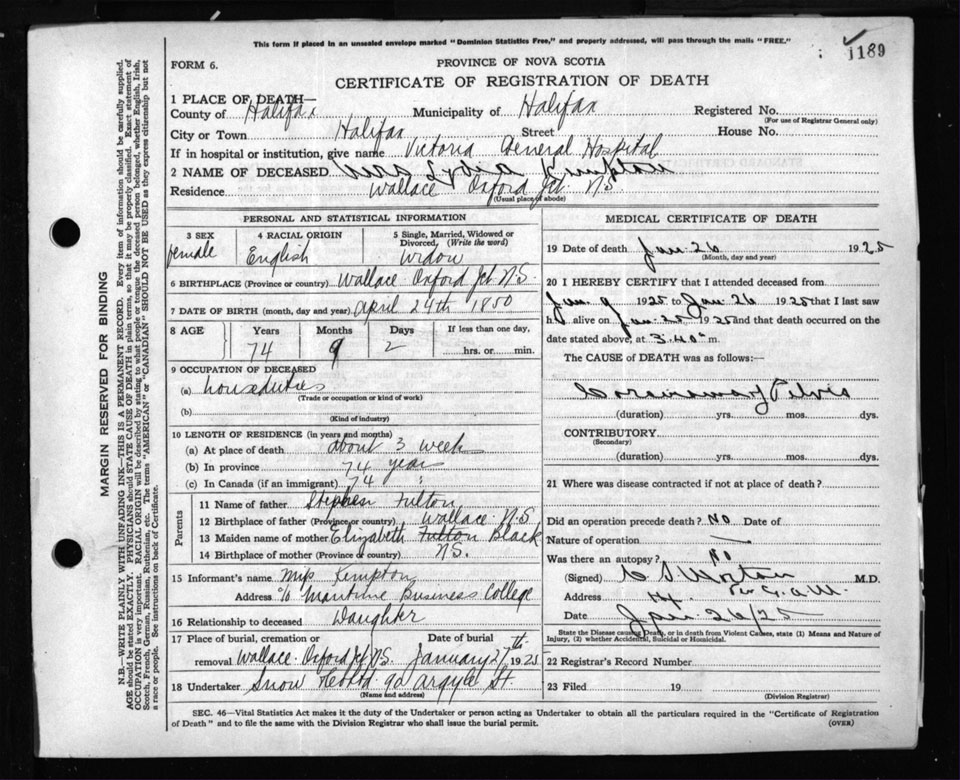 This form if placed in an unsealed envelope marked "Dominion Statistics Free," and properly addressed, will pass through the mails "FREE."
1189
FORM 6.
PROVINCE OF NOVA SCOTIA
CERTIFICATE OF REGISTRATION OF DEATH
1 PLACE OF DEATH—
County of Halifax Municipality of Halifax Registered No.
(For use of Registrar General only)
City or Town Halifax Street House No.
If in hospital or institution, give name Victoria General Hospital
2 NAME OF DECEASED Mrs Lydia Kempton
Residence Wallace Oxford Jct. N.S.
(Usual place of abode)
PERSONAL AND STATISTICAL INFORMATION
3 SEX
female
4 RACIAL ORIGIN
English
5 Single, Married, Widowed or
Divorced, (Write the word)
Widow
6 BIRTHPLACE (Province or country) Wallace Oxford Jct N.S.
7 DATE OF BIRTH (month, day and year) April 24th 1850
8 AGE Years Months Days If less than one day,
74 9 2 hrs. or min.
9 OCCUPATION OF DECEASED
(a) houseduties
(Trade or occupation or kind of work)
(b)
(Kind of industry)
10 LENGTH OF RESIDENCE (in years and months)
(a) At place of death about 3 week
(b) In province 74 years
(c) In Canada (if an immigrant) 74 "
Parents
11 Name of father Stephen Fulton
12 Birthplace of father (Province or country) Wallace N.S.
13 Maiden name of mother Elizabeth Fulton Black
14 Birthplace of mother (Province or country) N.S.
15 Informant's name Miss Kempton
Address c/o Maritime Business College
16 Relationship to deceased Daughter
17 Place of burial, cremation or Date of burial
removal Wallace Oxford Jct N.S. January 27th 1925
18 Undertaker Snow 90 Argyle St.
(Name and address)
MEDICAL CERTIFICATE OF DEATH
19 Date of death Jan. 26 1925
(Month, day and year)
20 I HEREBY CERTIFY that I attended deceased from
Jan 9 1925 to Jan 26 1925 that I last saw
h alive on Jan. 25 1925 and that death occurred on
date stated above, at 3.40 m.
The CAUSE of DEATH was as follows:—
Carcinoma of Pelvis
(duration) yrs. mos. dys.
CONTRIBUTORY
(Secondary)
(duration) yrs. mos. dys.
21 Where was disease contracted if not at place of death?
Did an operation precede death? No Date of
Nature of operation —
Was there an autopsy? No
(Signed) M.D.
Address
Date Jan 26/25
State the Disease causing Death, or in death from Violent Causes, state (1) Means and Nature of
Injury, (2) whether Accidental, Suicidal or Homicidal.
22 Registrar's Record Number
23 Filed 19
(Division Registrar)
SEC. 46—Vital Statistics Act makes it the duty of the Undertaker or person acting as Undertaker to obtain all the particulars required in the "Certificate of Registration
of Death" and to file the same with the Division Registrar who shall issue the burial permit. (OVER)
MARGIN RESERVED FOR BINDING
N.B.—WRITE PLAINLY WITH UNFADING INK—THIS IS A PERMANENT RECORD. Every item of information should be carefully supplied.
AGE should be stated EXACTLY. PHYSICIANS should STATE CAUSE OF DEATH in plain terms, so that it may be properly classified. Exact statement of
OCCUPATION is very important. RACIAL ORIGIN will be described by stating to what people or tongue the deceased person belonged, whether English, Irish,
Scotch, French, German, Russian, Ruthenian, etc. The terms "AMERICAN" or "CANADIAN" SHOULD NOT BE USED as they express citizenship but not
a race or people. See instructions on back of Certificate.